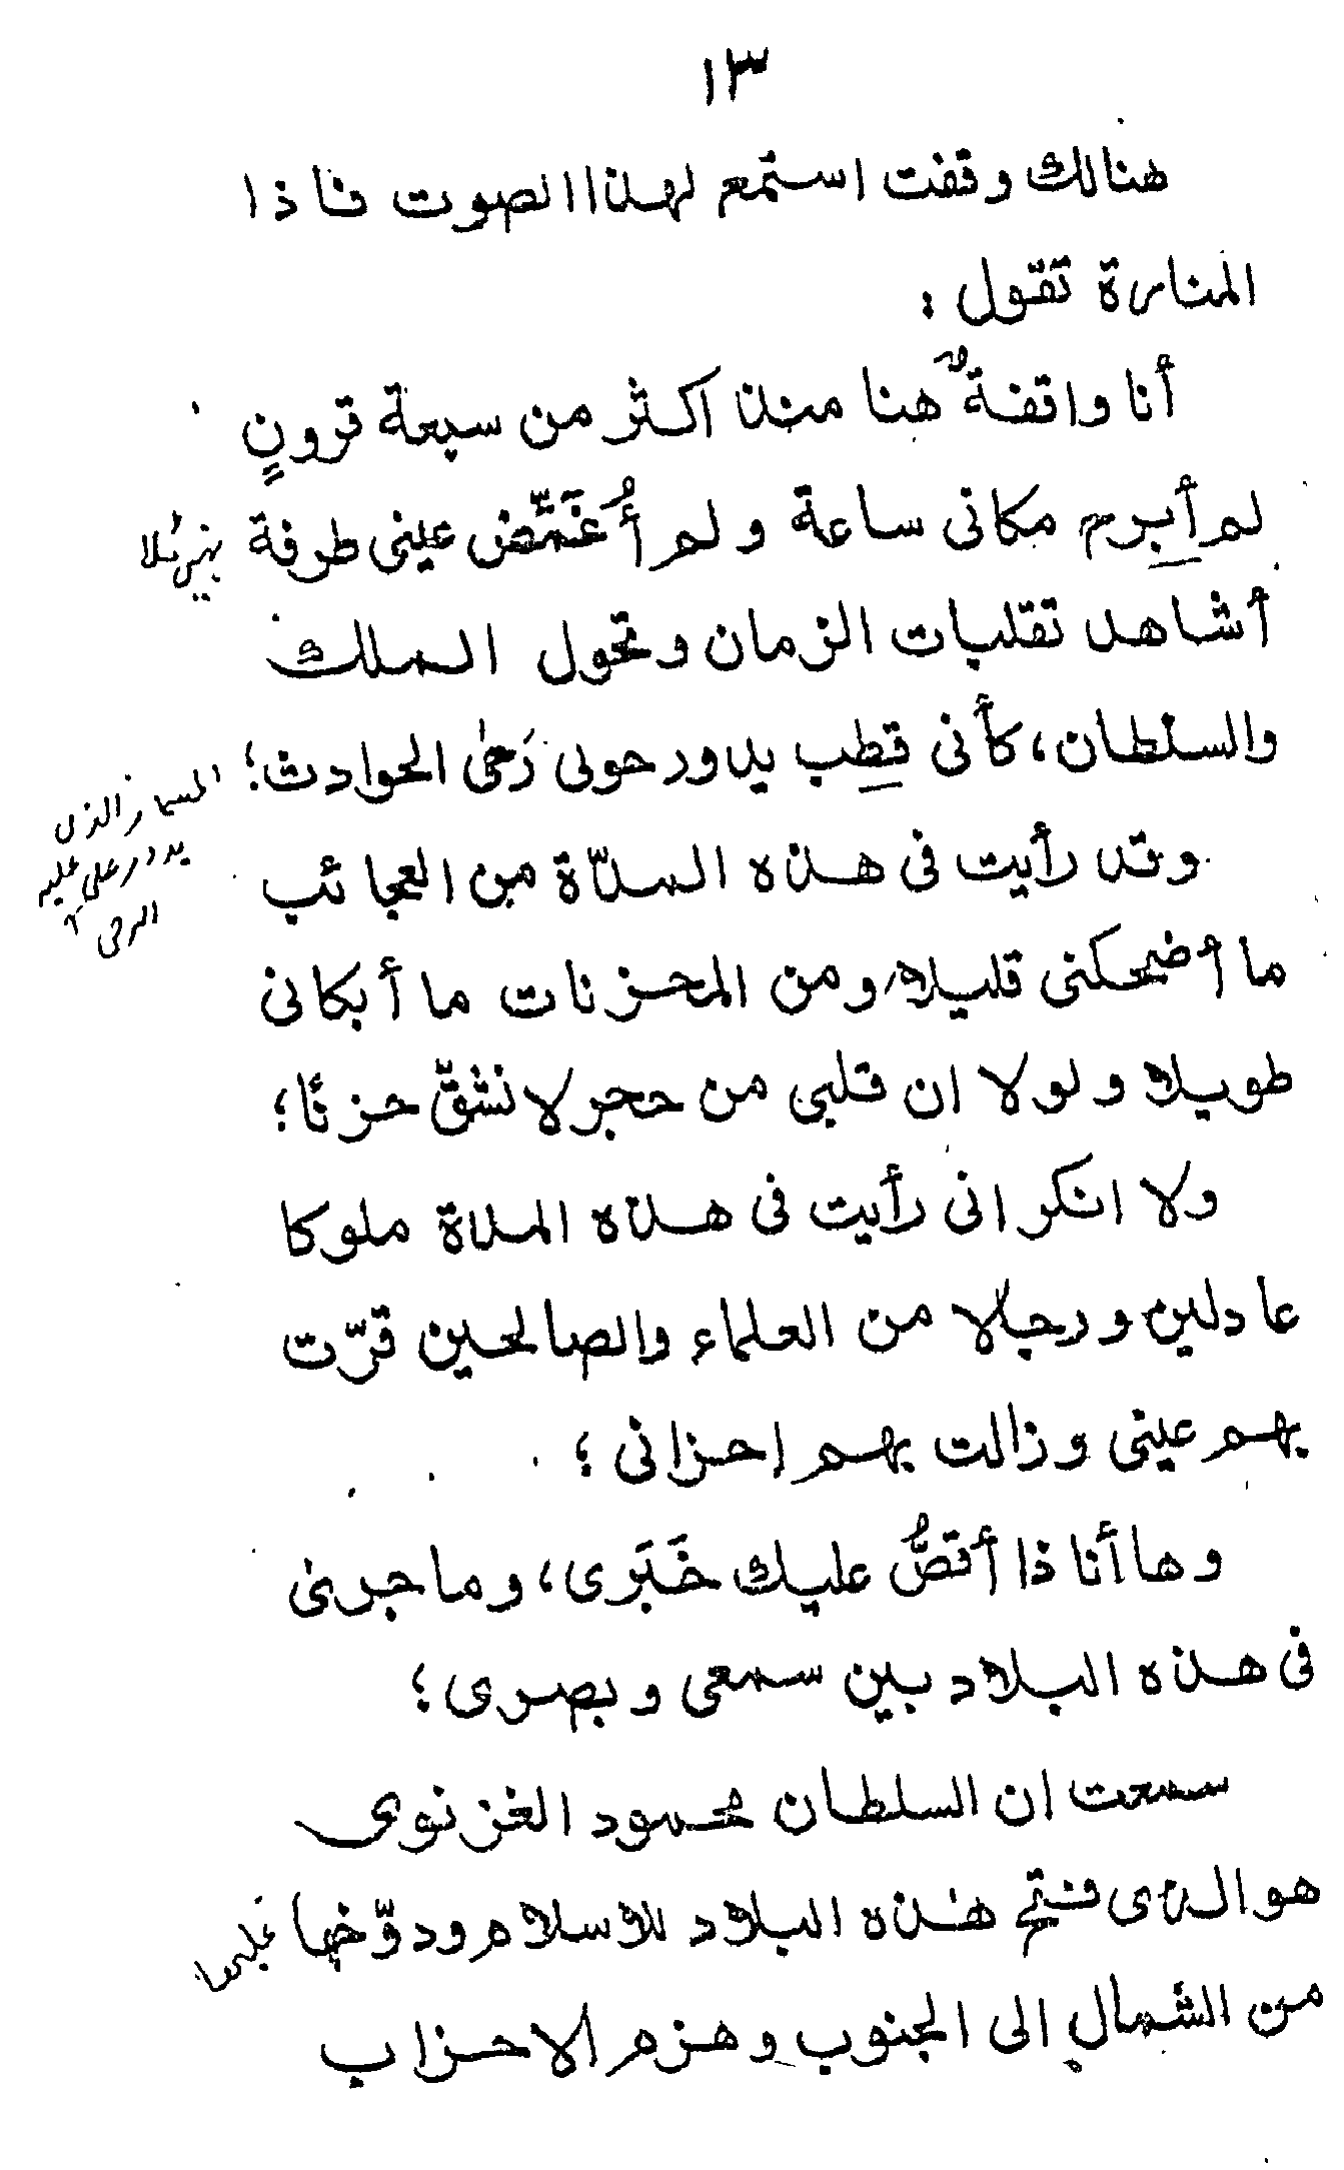 ١٣
هنالك وقفت استمع لهذا الصوت فاذا
المنارة تقول :
أنا واقفةٌ هنا منذ اكثر من سبعة قرونٍ
لم أبرم مكانى ساعة ولم أُغَمِّض عينى طرفة
نہیں ٹلا
أشاهد تقلبات الزمان وتحول الملك
والسلطان، كأنى قطب يدور حولى رَحىٰ الحوادث؛
المسمار الذى
يدور على عليه
الرحى
وقد رأيت فى هذه المدّة من العجائب
ما أضحكنى قليلا ومن المحزنات ما أبكانى
طويلا ولولا ان قلبى من حجر لانشقّ حزنًا؛
ولا انكر انى رأيت فى هذه المدة ملوكا
عادلين ورجالا من العلماء والصالحين قرّت
بهم عينى وزالت بهم إحزانى ؛
وها أنا ذا أقصُّ عليك خَبَرى، وما جرى
فى هذه البلاد بين سمعى وبصرى؛
سمعت ان السلطان محمود الغزنوى
هو الذى فتح هذه البلاد للاسلام ودوّخها
من الشمال الى الجنوب وهزم الاحزاب